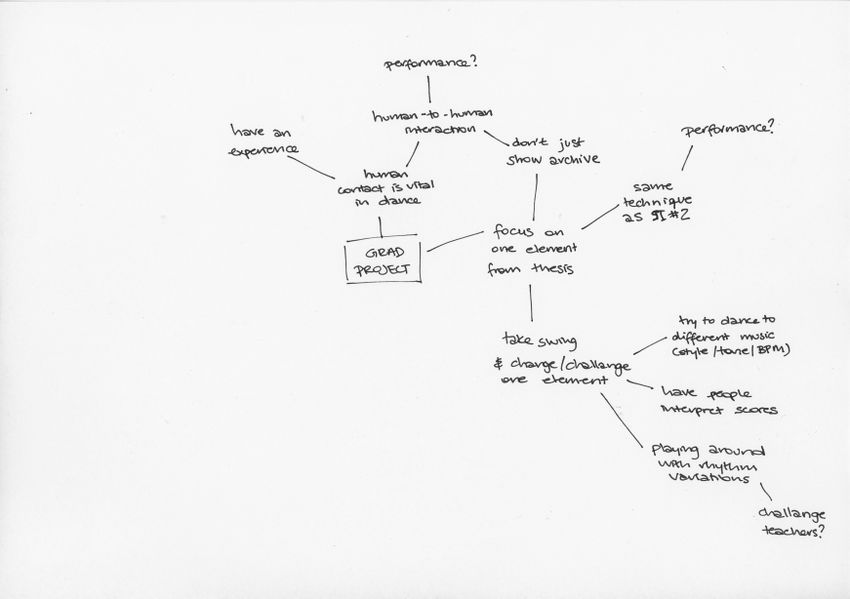 performance?
human-to-human
interaction
have an
experience
don't just
show archive
performance?
human
contact is vital
in dance
same
technique
as #2
GRAD
PROJECT
focus on
one element
from thesis
take swing
& change/challenge
one element
try to dance to
different music
(style/tone/BPM)
have people
interpret scores
playing around
with rhythm
variations
challange
teachers?